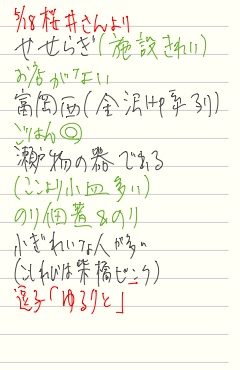 5/18 桜井さんより
せせらぎ(施設きれい)
お店がない
富岡西(金沢HP系列)
ごはん◎
瀬戸物の器である
(ここより小皿多い)
のり佃煮&のり
小ぎれいな人が多い
逗子「ゆるりと」